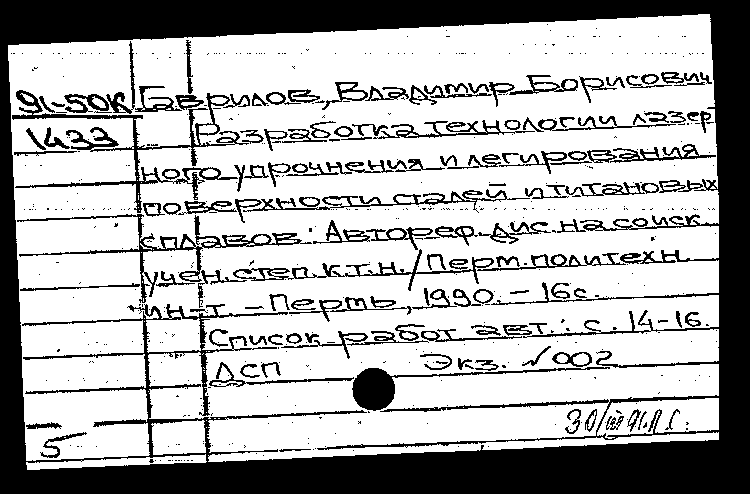 91-50К Гаврилов, Владимир Борисович
1433 Разработка технологии лазер
ного упрочнения и легирования
поверхности сталей и титановых
сплавов: Автореф. дис. на соиск.
учен. степ. к.т.н. / Перм. политехн.
ин-т. - Пермь, 1990. - 16с.
Список работ авт.: с. 14-16.
ДСП Экз. №002
30/III 91
5